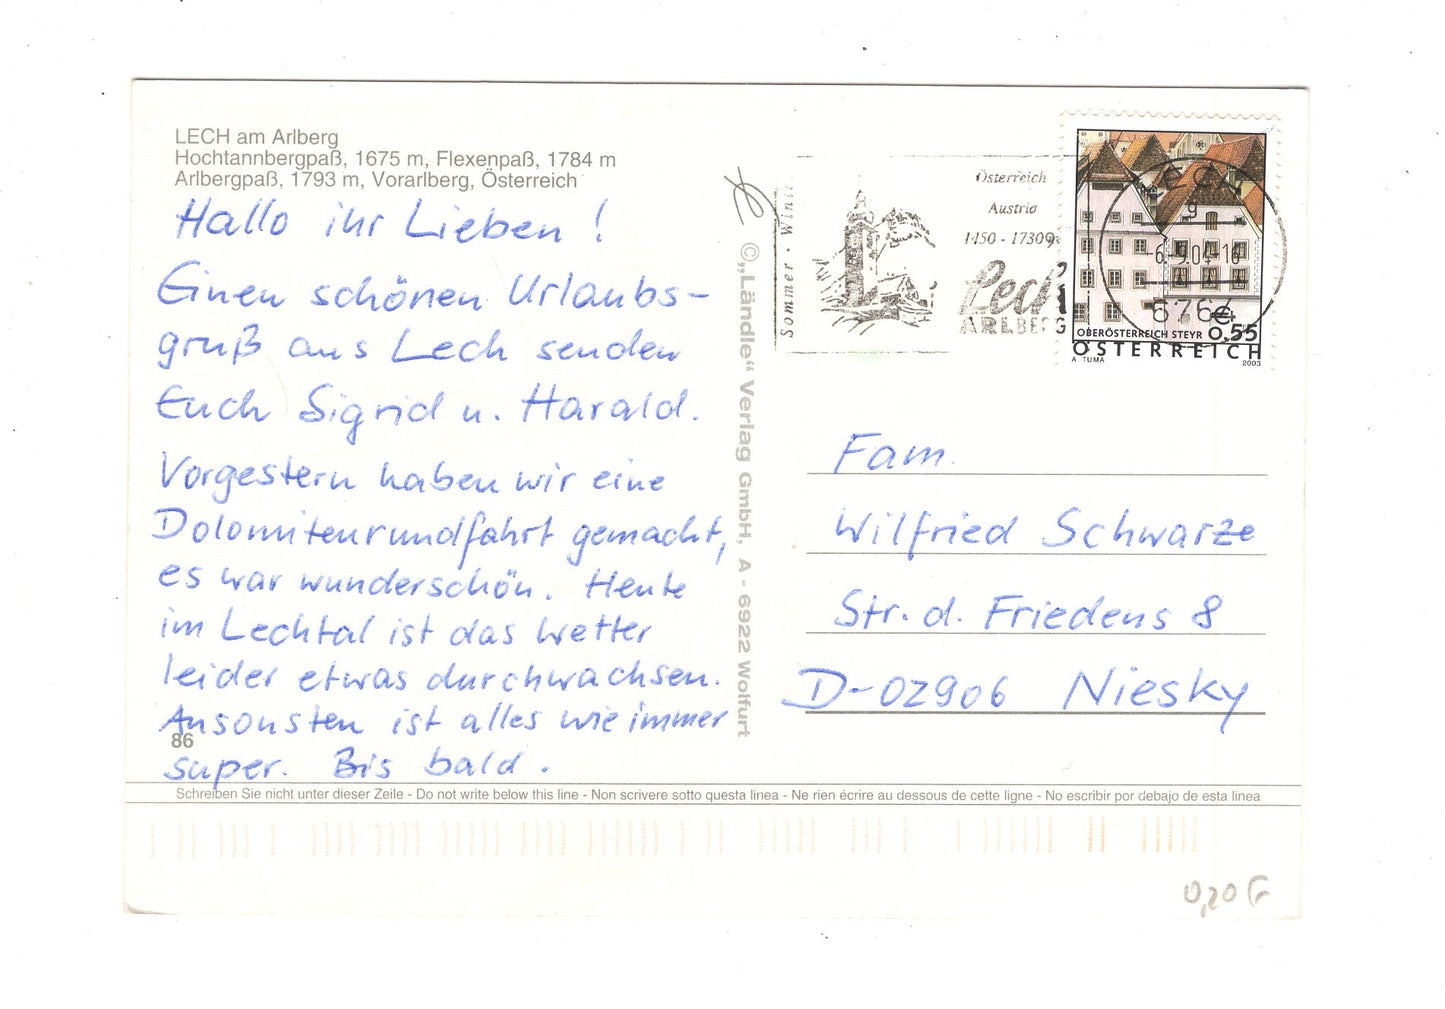 LECH am Arlberg
Hochtannbergpaß, 1675 m, Flexenpaß, 1784 m
Arlbergpaß, 1793 m, Vorarlberg, Österreich
Hallo ihr Lieben !
Einen schönen Urlaubs-
gruß aus Lech senden
Euch Sigrid u. Harald.
Vorgestern haben wir eine
Dolomitenrundfahrt gemacht,
es war wunderschön. Heute
im Lechtal ist das Wetter
leider etwas durchwachsen.
Ansonsten ist alles wie immer
86
super. Bis bald.
©„Ländle" Verlag GmbH, A - 6922 Wolfurt
Sommer ·
Österreich
Austria
1450 - 1730
Lech
ARLBERG
9
-6.-9.04-16
6764
OBERÖSTERREICH STEYR € 0,55
ÖSTERREICH
A TUMA 2003
Fam.
Wilfried Schwarze
Str. d. Friedens 8
D-02906 Niesky
Schreiben Sie nicht unter dieser Zeile - Do not write below this line - Non scrivere sotto questa linea - Ne rien écrire au dessous de cette ligne - No escribir por debajo de esta linea
0,20